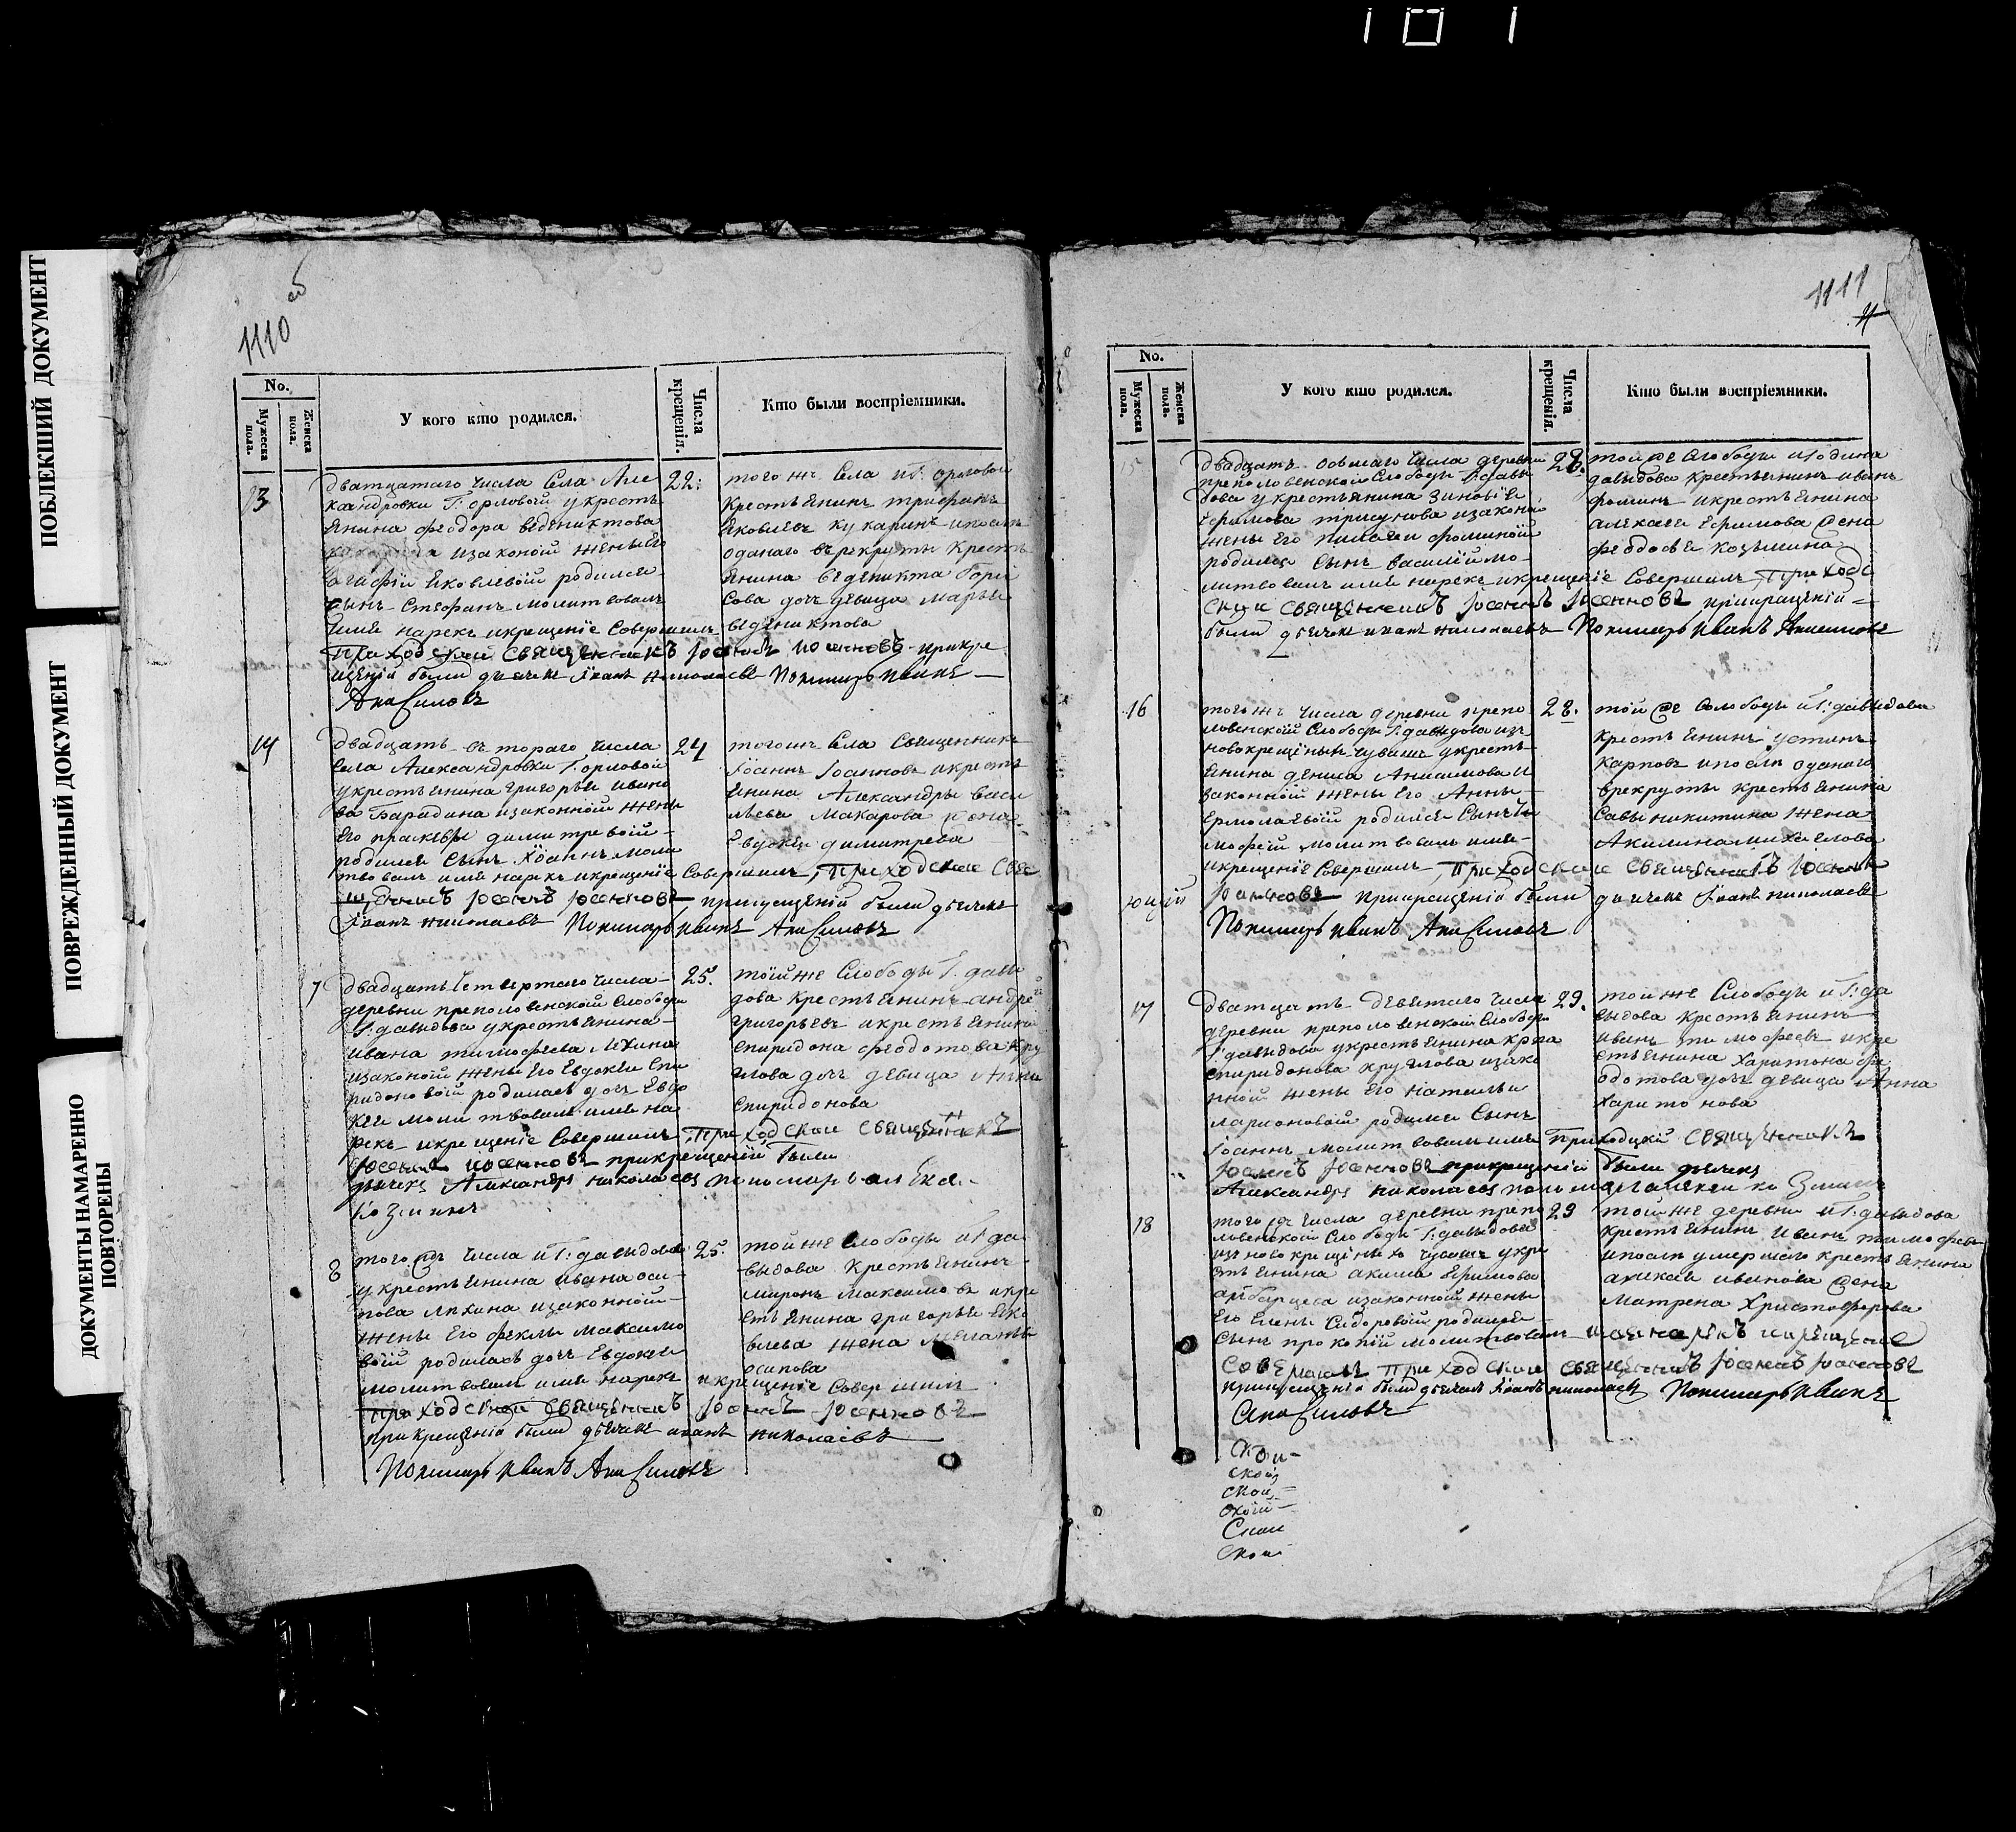 101
ПОБЛЕКШИЙ ДОКУМЕНТ
ПОВРЕЖДЕННЫЙ ДОКУМЕНТ
ДОКУМЕНТЫ НАМАРЕННО
ПОВТОРЕНЫ
1110 об
No.
Мужеска пола.
Женска пола.
У кого кто родился.
Числа крещенія.
Кто были воспріемники.
13
дватцатаго числа Села Але
ксандровки Г: орловой у кресть
янина феодора ведениктова
изаконой жены Его
агафіи Яковлевой родился
сынъ Стефанъ молитвовалъ
имя нарекъ икрещеніе Совершилъ
Приходской Священникъ Іоаннъ Іоанновъ прикре
щеніи были дьячекъ Іванъ николаевъ Пономарь Иванъ
22:
того же Села и Г: орловой
крестьянинъ трифонъ
Яковлевъ кукаринъ ипосля
оданаго врекруты кресть
янина веденикта бори
сова дочь девица марья
ведениктова
14
двадцать втораго числа
села Александровки Г: орловой
укрестьянина григорья ивано
ва изаконной жены
Его праскевы димитревой
родился сынъ Іоаннъ моли
твовалъ имя нарекъ икрещеніе Совершилъ, Приходской Свя
щенникъ Іоаннъ Іоанновъ прикрещеніи были дьячекъ
Іванъ николаевъ Пономарь Иванъ
24
тогоже Села Священникъ
Іоаннъ Іоанновъ икресть
янина Александры васи
льева макарова жена
Евдокея димитрева
7
двадцать четвертаго числа
деревни преполовенской Слободы
Г: давыдова укрестьянина
ивана тимофеева Ляхина
изаконой жены Его Евдокеи Спи
ридоновой родилась дочь Евдо
кея молитвовалъ имя на
рекъ икрещеніе Совершилъ Приходской Священникъ
Іоаннъ Іоанновъ прикрещеніи были
дьячекъ Александръ николаевъ пономарь
Козминъ
25.
тойже Слободы Г: давы
дова крестьянинъ андрей
григорьевъ икрестьянина
спиридона феодотова кру
глова дочь девица Анна
Спиридонова
8
того же числа и Г: давыдова
укрестьянина ивана оси
пова ляхина изаконной
жены Его феклы максимо
вой родилась дочь Евдокея
молитвовалъ имя нарекъ икрещеніе Совершилъ
Приходской Священникъ Іоаннъ Іоанновъ
прикрещеніи были дьячекъ иванъ николаевъ
Пономарь Иванъ
25.
тойже Слободы и Г да
выдова Крестьянинъ
миронъ максимовъ икре
стьянина григорья Яко
влева жена меланья
осипова
1111
No.
Мужеска пола.
Женска пола.
У кого кто родился.
Числа крещенія.
Кто были воспріемники.
15
двадцать осьмаго числа деревни
преполовенской Слободы Г: давы
дова укрестьянина зиновіе
Ефимова изаконой
жены Его фоминой
родился сынъ василій мо
литвовалъ имя нарекъ икрещеніе Совершилъ Приход
ской Священникъ Іоаннъ Іоанновъ прикрещеніи
были дьячекъ иванъ николаевъ Пономарь Иванъ
28.
той же Слободы
давыдова крестьянинъ иванъ
фоминъ икрестьянина
алексея Ефимова жена
феодосья козьмина
16
того же числа деревни препо
ловенской Слободы Г: давыдова изъ
новокрещеныхъ чувашъ укресть
янина дениса Анисимова и
законной жены Его Анны
Ермолаевой родился Сынъ ти
мофей молитвовалъ имя
икрещеніе Совершилъ Приходской Священникъ Іоаннъ
Іоанновъ прикрещеніи были дьячекъ Іванъ николаевъ
Пономарь Иванъ
28.
той же Слободы и Г: давыдова
крестьянинъ устинъ
карповъ ипосля оданаго
врекруты крестьянина
Савы никитина жена
Акилина михаелова
17
дватцать девятаго числа
деревни преполовенской Слободы
Г: давыдова укрестьянина
спиридонова круглова изако
нной жены Его натальи
ларионовой родился Сынъ
Іоаннъ молитвовалъ имя Приходцкій Священникъ
Іоаннъ Іоанновъ прикрещеніи были дьячекъ
Александръ николаевъ пономарь
29.
тойже Слободы и Г: да
выдова крестьянинъ
иванъ тимофеевъ икре
стьянина Харитона фе
одотова дочь девица Анна
Харитонова
18
того же числа деревни препо
ловенской Слободы Г: давыдова
изъ новокрещеныхъ чувашъ укре
стьянина акима Ефимова
изаконной жены
Его Елены Сидоровой родился
сынъ прокопій молитвовалъ имя нарекъ икрещеніе
Совершилъ Приходской Священникъ Іоаннъ Іоанновъ
прикрещеніи были дьячекъ Іванъ николаевъ Пономарь Иванъ
29
тойже деревни и Г: давыдова
крестьянинъ иванъ тимофеевъ
ипосля умершаго крестьянина
алексея иванова жена
матрена Христофорова
ской
ской
ской